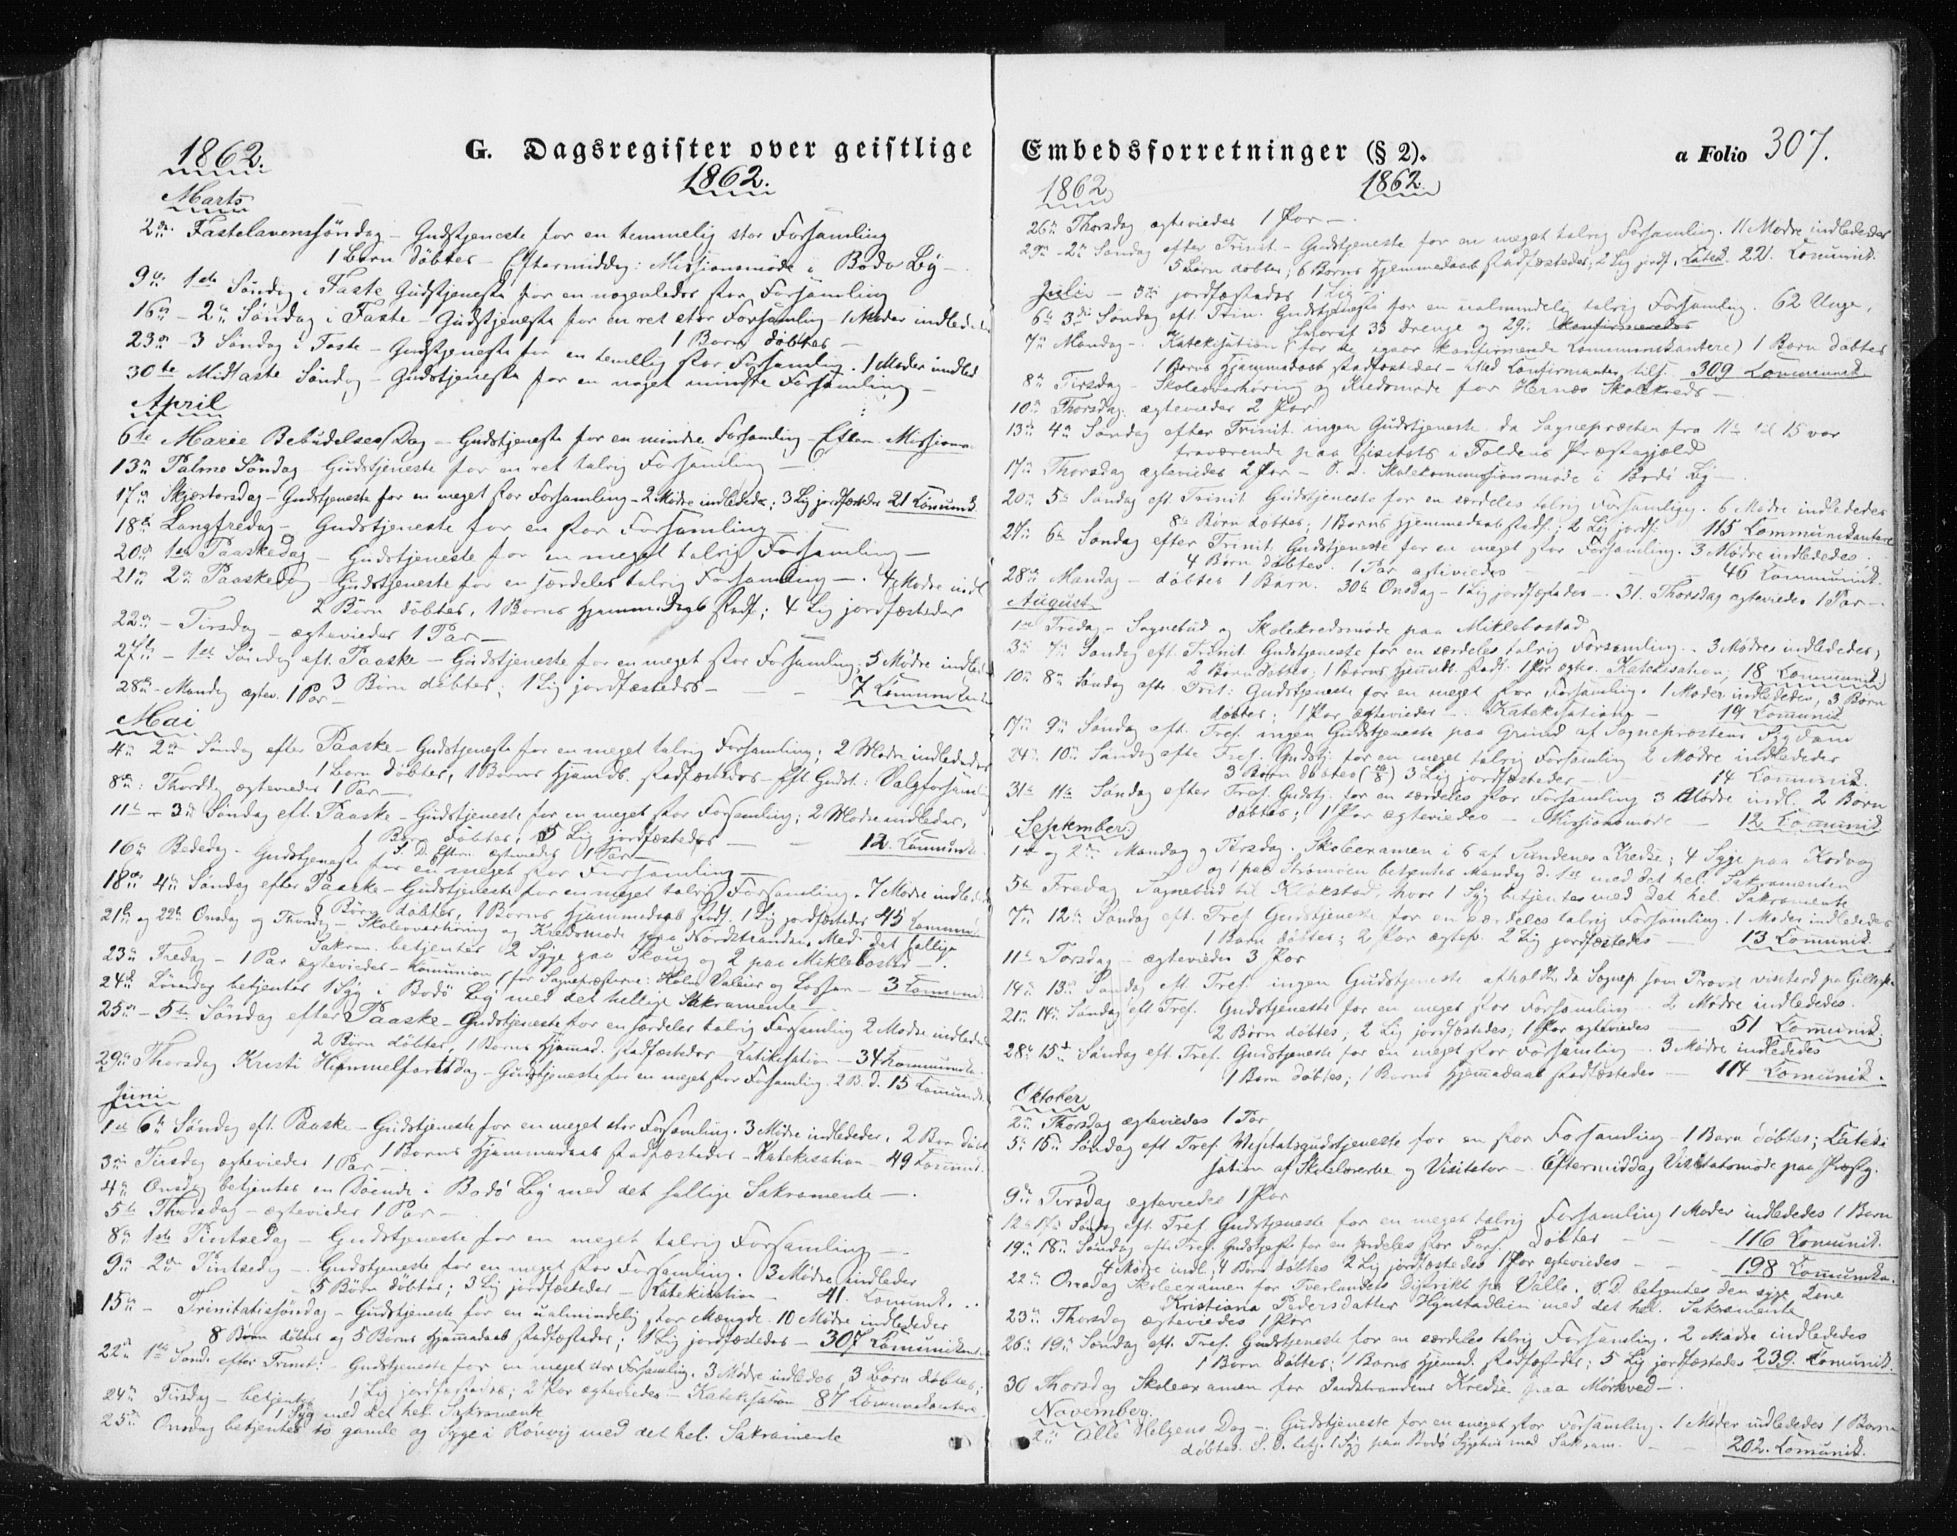 G. Dagsregister over geistlige Embedsforretninger (§ 2).
a Folio 307.
1862.
1862.
Marts
2den Fastelavenssøndag – Gudstjeneste for en temmelig stor Forsamling
1 Barn døbtes – Eftermiddag: Missionsmøde i Bodø By –
9de 1ste Søndag i Faste Gudstjeneste for en nogenledes stor Forsamling
16de – 2den Søndag i Faste – Gudstjeneste for en ret stor Forsamling – 1 Moder indlededes
1 Barn døbtes –
23de – 3 Søndag i Faste – Gudstjeneste for en temmelig stor Forsamling. 1 Moder indled
30te Midfaste Søndag – Gudstjeneste for en noget mindre Forsamling –
April
6te Marie Bebudelses Dag – Gudstjeneste for en mindre Forsamling – Efterm. Missions
13de Palme Søndag – Gudstjeneste for en ret talrig Forsamling –
17de Skjærtorsdag – Gudstjeneste for en meget stor Forsamling – 2 Mødre indledede; 3 Lig jordfæstedes 21 Komunik.
18de Langfredag – Gudstjeneste for en stor Forsamling –
20de 1ste Paaskedag – Gudstjeneste for en meget talrig Forsamling –
21de 2den Paaskedag – Gudstjeneste for en særdeles talrig Forsamling –. 4 Mødre indl
2 Børn døbtes, 1 Barns Hjemmedaab stadf; 4 Lig jordfæstedes
22de – Tirsdag – ægteviedes 1 Par –
27de – 1ste Søndag eft. Paaske – Gudstjeneste for en meget stor Forsamling; 5 Mødre indled
3 Børn døbtes; 1 Lig jordfæstedes – – – 7 Komunikan
28de – Mandag ægtev. 1 Par –
Mai
4de 2den Søndag efter Paaske – Gudstjeneste for en meget talrig Forsamling; 2 Mødre indlededes
1 Barn døbtes, 1 Barns Hjemdb. stadfæstedes – Eft. Gudst: Valgforsaml
8de: Thorsdag ægteviedes 1 Par –
11te – 3die Søndag eft. Paaske – Gudstjeneste for en meget stor Forsamling; 2 Mødre indledes,
1 Barn døbtes, 5 Lig jordfæstedes – – 12 Komunik
S. D. Efterm. ægteviedes 1 Par –
16de Bededag – Gudstjeneste for en meget stor Forsamling –
18de 4de Søndag efter Paaske – Gudstjeneste for en meget talrig Forsamling. 7 Mødre indled
Børn døbtes, 1 Barns Hjemmedaab stadf. 1 Lig jordfæstedes 45 Komunik
21de og 22de Onsdag og Thorsdag – Skoleoverhøring og Kredsmøde paa Nordstranden. Med det hellige
Sakram. betjentes 2 Syge paa Skaug og 2 paa Miklebostad –.
23de Fredag – 1 Par ægteviedes – Komunion (for Sognepræsterne: Holm, Valeur og Lossen – 3 Komunik.
24de Løverdag betjentes 1 Syg i Bodø By med det hellige Sakramente –.
25de – 5te Søndag efter Paaske – Gudstjeneste for en særdeles talrig Forsamling 2 Mødre indled
2 Børn døbtes, 1 Barns Hjemmed. stadfæstedes – Katekisation – 34 Kommunik
29de Thorsdag Kristi Himmelfartsdag – Gudstjeneste for en meget stor Forsamling. 2 B. d. 15 Komunik.
Juni
1ste 6te Søndag eft. Paaske – Gudstjeneste for en meget stor Forsamling. 3 Mødre indlededes. 2 Børn døbt
1 Barns Hjemmedaab stadfæstedes – Katekisation – 49 Komunik
3die Tirsdag ægteviedes 1 Par –.
4de Onsdag betjentes en Døende i Bodø By med det hellige Sakramente –.
5te Thorsdag – ægteviedes 1 Par –
8de 1ste Pintsedag – Gudstjeneste for en meget talrig Forsamling –.
9de 2den Pintsedag – Gudstjeneste for en meget stor Forsamling. 3 Mødre indledes
5 Børn døbtes; 3 Lig jordfæstedes – Katekisation – 41. Komunik.
15de – Trinitatissøndag – Gudstjeneste for en ualmindelig stor Mængde. 10 Mødre indlededes
8 Børn døbtes og 5 Børns Hjemmedaab stadfæstedes; 1 Lig jordfæstedes – 307 Komunikan
22de 1ste Sønd. efter Trinit: – Gudstjeneste for en meget stor Forsamling. 3 Mødre indledes, 3 Børn døbtes;
1 Lig jordfæstedes; 2 Par ægteviedes – Katekisation 87 Komunikantere
24de Tirsdag – betjentes 1 Syg med det hel. Sakramente
25de Onsdag betjentes to gamle og Syge i Rønvig med det hel. Sakramente
1862
1862
26de Thorsdag ægteviedes 1 Par –.
29de – 2den Søndag efter Trinit – Gudstjeneste for en meget talrig Forsamling. 11 Mødre indlededes
5 Børn døbtes; 6 Børns Hjemmedaab stadfæstedes; 2 Lig jordf. Katek. 221. Komunik.
Juli – 3die jordfæstedes 1 Lig
6te 3die Søndag eft. Trin. Gudstjeneste for en ualmindelig talrig Forsamling. 62 Unge,
hvoraf 33 Drenge og 29. konfirmeredes
7de Mandag – Katekisation (for de igaar konfirmerede Kommunikantere) 1 Barn døbtes
1 Barns Hjemmedaab stadfæstedes – Med Konfirmanter tils. 309 Kommunik.
8de Tirsdag – Skoleoverhøring og Kredsmøde for Hernæs Skolekreds –
10de Thorsdag. ægteviedes 2 Par
13de 4de Søndag efter Trinit. ingen Gudstjeneste da Sognepræsten fra 11te til 15 var
fraværende paa Visitats i Foldens Præstegjæld
17de Thorsdag ægteviedes 2 Par – S. D. Skolekommissionsmøde i Bodø By –.
20de 5te Søndag eft. Trinit Gudstjeneste for en særdeles talrig Forsamling. 6 Mødre indlededes
8te Børn døbtes; 1 Barns Hjemmedaab stadf; 2 Lig jordf: 115 Kommunikantere
27de 6te Søndag efter Trinit. Gudstjeneste for en meget stor Forsamling. 3 Mødre indlededes.
4 Børn døbtes. 1 Par ægteviedes – – – 46 Kommunik.
28de Mandag – døbtes 1 Barn. 30te Onsdag – 1 Lig jordfæstedes –. 31. Thorsdag ægteviedes 1 Par –.
August
1ste Fredag – Sognebud og Skolekredsmøde paa Miklebostad
3die 7de Søndag eft. Trinit. Gudstjeneste for en særdeles talrig Forsamling. – 3 Mødre indlededes,
2 Børn døbtes; 1 Barns Hjemmdb stadf. 1 Par ægtev. Katekisation, 18 Kommunik
10de 8de Søndag eft. Trit: Gudstjeneste for en meget stor Forsamling. 1 Moder indlededes, 3 Børn
døbtes; 1 Par ægteviedes –. Katekisation – 19 Komunik
17de 9de Søndag eft. Tref. ingen Gudstjeneste paa Grund af Sognepræstens Sygdom
24de 10de Søndag eft. Tref. Gudstj for en meget talrig Forsamling 2 Mødre indlededes
3 Børn døbtes 3 Lig jordfæstedes – – 14 Komunik.
31te 11te Søndag efter Tref. Gudstj. for en særdeles stor Forsamling 3 Mødre indl. 2 Børn
døbtes; 1 Par ægteviedes – Missionsmøde – 12 Komunik
September.
1ste og 2den Mandag og Tirsdag. Skoleexamen i 6 af Sundenes Kredse; 4 Syge paa Kodvag
og 1 paa Strømøen betjentes Mandag d. 1ste med det hel. Sakramenten
5te Fredag Sognebud til Klokstad, hvor 1 Syg betjentes med det hel. Sakramente
7de 12te Søndag eft. Tref Gudstjeneste for en særdeles talrig Forsamling. 1 Moder indlededes
1 Barn døbtes; 2 Par ægtev. 2 Lig jordfæstedes – 13 Komunik
11te Torsdag – ægteviedes 3 Par
14de 13de Søndag eft Tref. ingen Gudstjeneste afholdtes, da Sognep. som Provst visiterd på Gilleskaal
21de 14de Søndag eft Tref. Gudstjeneste for en meget stor Forsamling. 2 Mødre indlededes.
2 Børn døbtes, 2 Lig jordfæstedes, 1 Par ægteviedes – 51 Komunik
28de 15de Søndag eft. Tref. Gudstjeneste for en meget stor Forsamling –. 3 Mødre indlededes
1 Barn døbtes; 1 Barns Hjemmedaab stadfæstedes – 114 Komunik.
Oktober
2den Thorsdag ægteviedes 1 Par
5te 16de Søndag eft Tref. Visitatsgudstjeneste for en stor Forsamling – 1 Barn døbtes; Kateki
sation af Skolelærerne og Visitator –. Eftermiddag Visitatsmøde paa Præsteg.
9de Tirsdag ægteviedes 1 Par
12te 17de Søndag eft. Tref. Gudstjeneste for en meget talrig Forsamling 1 Moder indlededes 1 Barn
døbtes – – 116 Komunik.
19de 18de Søndag eft Tref. Gudstjeneste for en særdeles stor Fors.
4 Mødre indl; 4 Børn døbtes 2 Lig jordfæstedes 1 Par ægteviedes – – 198 Komunika.
22de Onsdag Skoleexamen for Tverlandets Distrikt på Valle. S. D. betjentes den syge Lene
Kristiana Pedersdatter med det hel. Sakramente
23de Thorsdag ægteviedes 1 Par
26de 19de Søndag eft. Tref. Gudstjeneste for en særdeles talrig Forsamling. 2 Mødre indlededes
1 Barn døbtes; 1 Barns Hjemmed. stadfæstedes; 5 Lig jordfæstedes 239. Komunik.
30 Thorsdag Skoleexamen for Indstrandens Kredse paa Mørkved –.
November.
2den Alle Helgens Dag –. Gudstjeneste for en meget stor Forsamling. 1 Moder indlededes 1 Barn
døbtes. S. D. betj. 1 Syg paa Bodø Sygehus med Sakram. – – 202. Komunik.